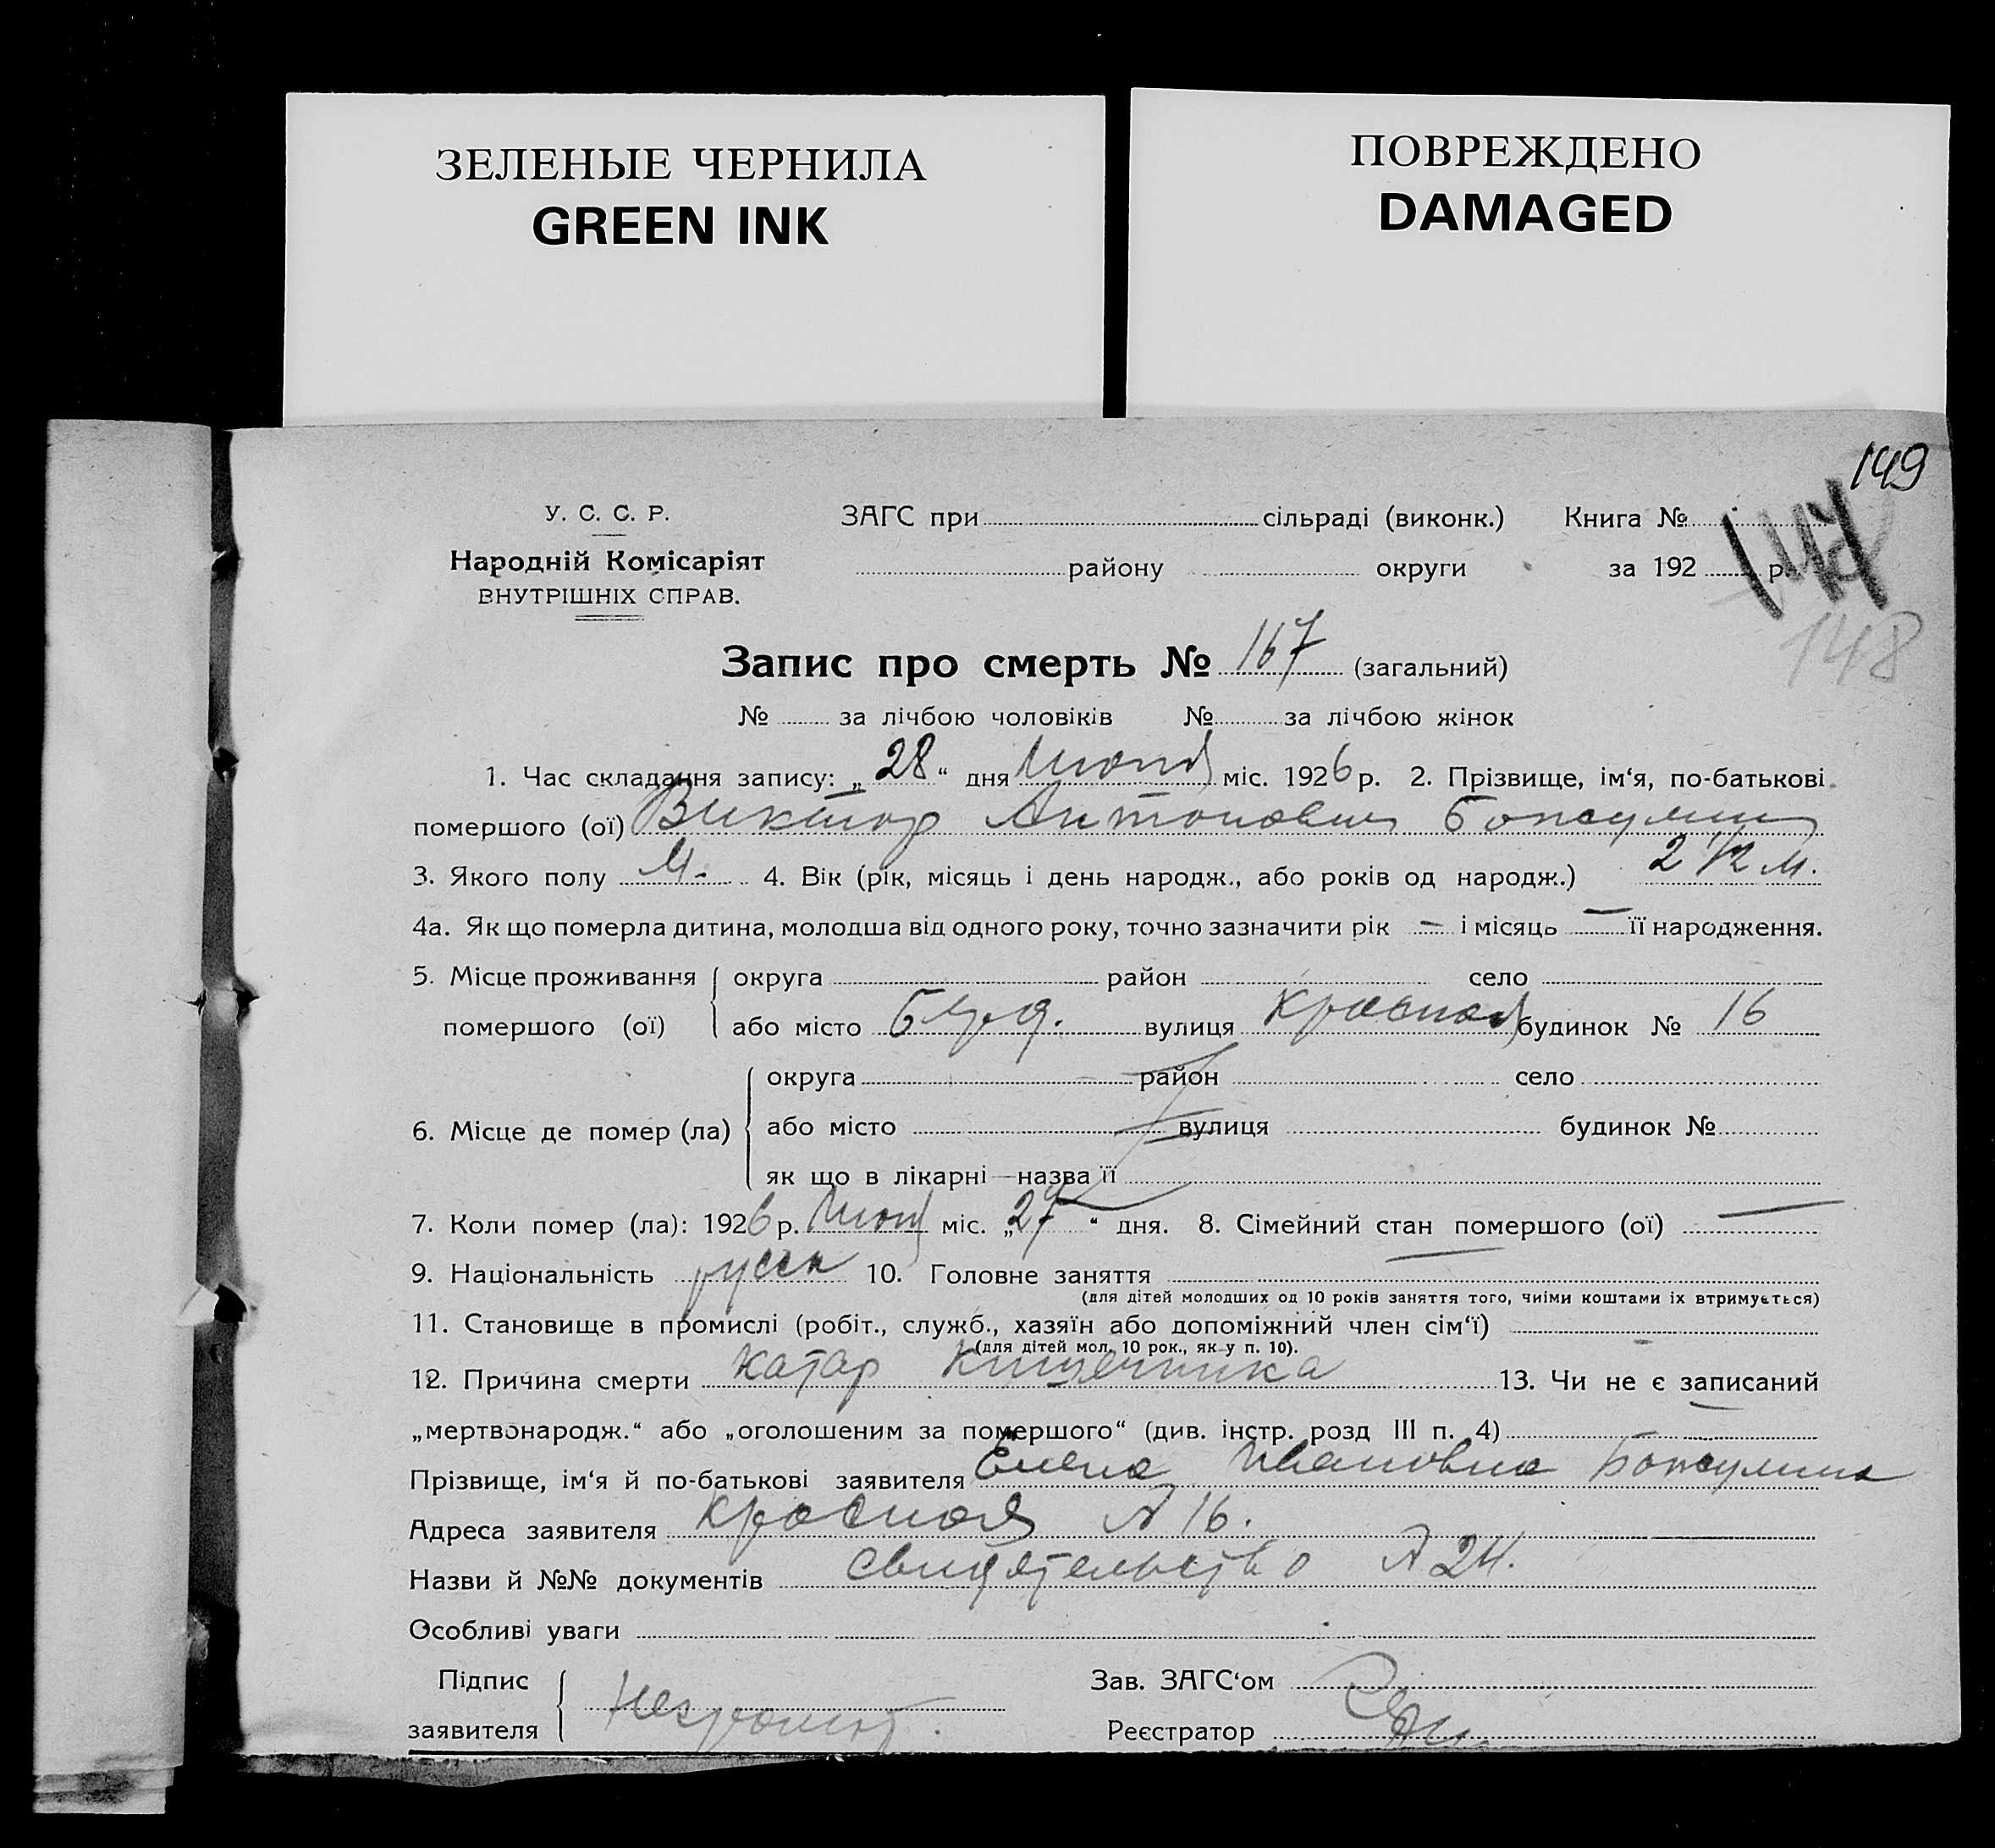 ЗЕЛЕНЫЕ ЧЕРНИЛА
GREEN INK
ПОВРЕЖДЕНО
DAMAGED
149
147
148
У. С. С. Р.
Народній Комісаріят
ВНУТРІШНІХ СПРАВ.
ЗАГС при сільраді (виконк.) Книга №
району округи за 192 р.
Запис про смерть № 167 (загальний)
№ за лічбою чоловіків № за лічбою жінок
1. Час складання запису: „28“ дня Июня міс. 1926 р. 2. Прізвище, ім‘я, по-батькові
помершого (ої) Виктор Антонович
3. Якого полу М. 4. Вік (рік, місяць і день народж., або років од народж.) 2 1/2 м.
4а. Як що померла дитина, молодша від одного року, точно зазначити рік — і місяць — її народження.
5. Місце проживання округа район село
помершого (ої) або місто вулиця Красная будинок № 16
округа район село
6. Місце де помер (ла) або місто вулиця будинок №
як що в лікарні—назва її
7. Коли помер (ла): 1926 р. Июня міс. „27“ дня. 8. Сімейний стан помершого (ої) —
9. Національність русск 10. Головне заняття —
(для дітей молодших од 10 років заняття того, чиїми коштами їх втримується)
11. Становище в промислі (робіт., служб., хазяїн або допоміжний член сім‘ї)
(для дітей мол. 10 рок., як-у п. 10).
12. Причина смерти Катар кишечника 13. Чи не є записаний
„мертвонародж.“ або „оголошеним за помершого“ (див. інстр. розд III п. 4)
Прізвище, ім‘я й по-батькові заявителя Елена Ивановна
Адреса заявителя Красная № 16.
Назви й №№ документів свидетельство № 24.
Особливі уваги
Підпис
заявителя Неграмот.
Зав. ЗАГС‘ом
Реєстратор